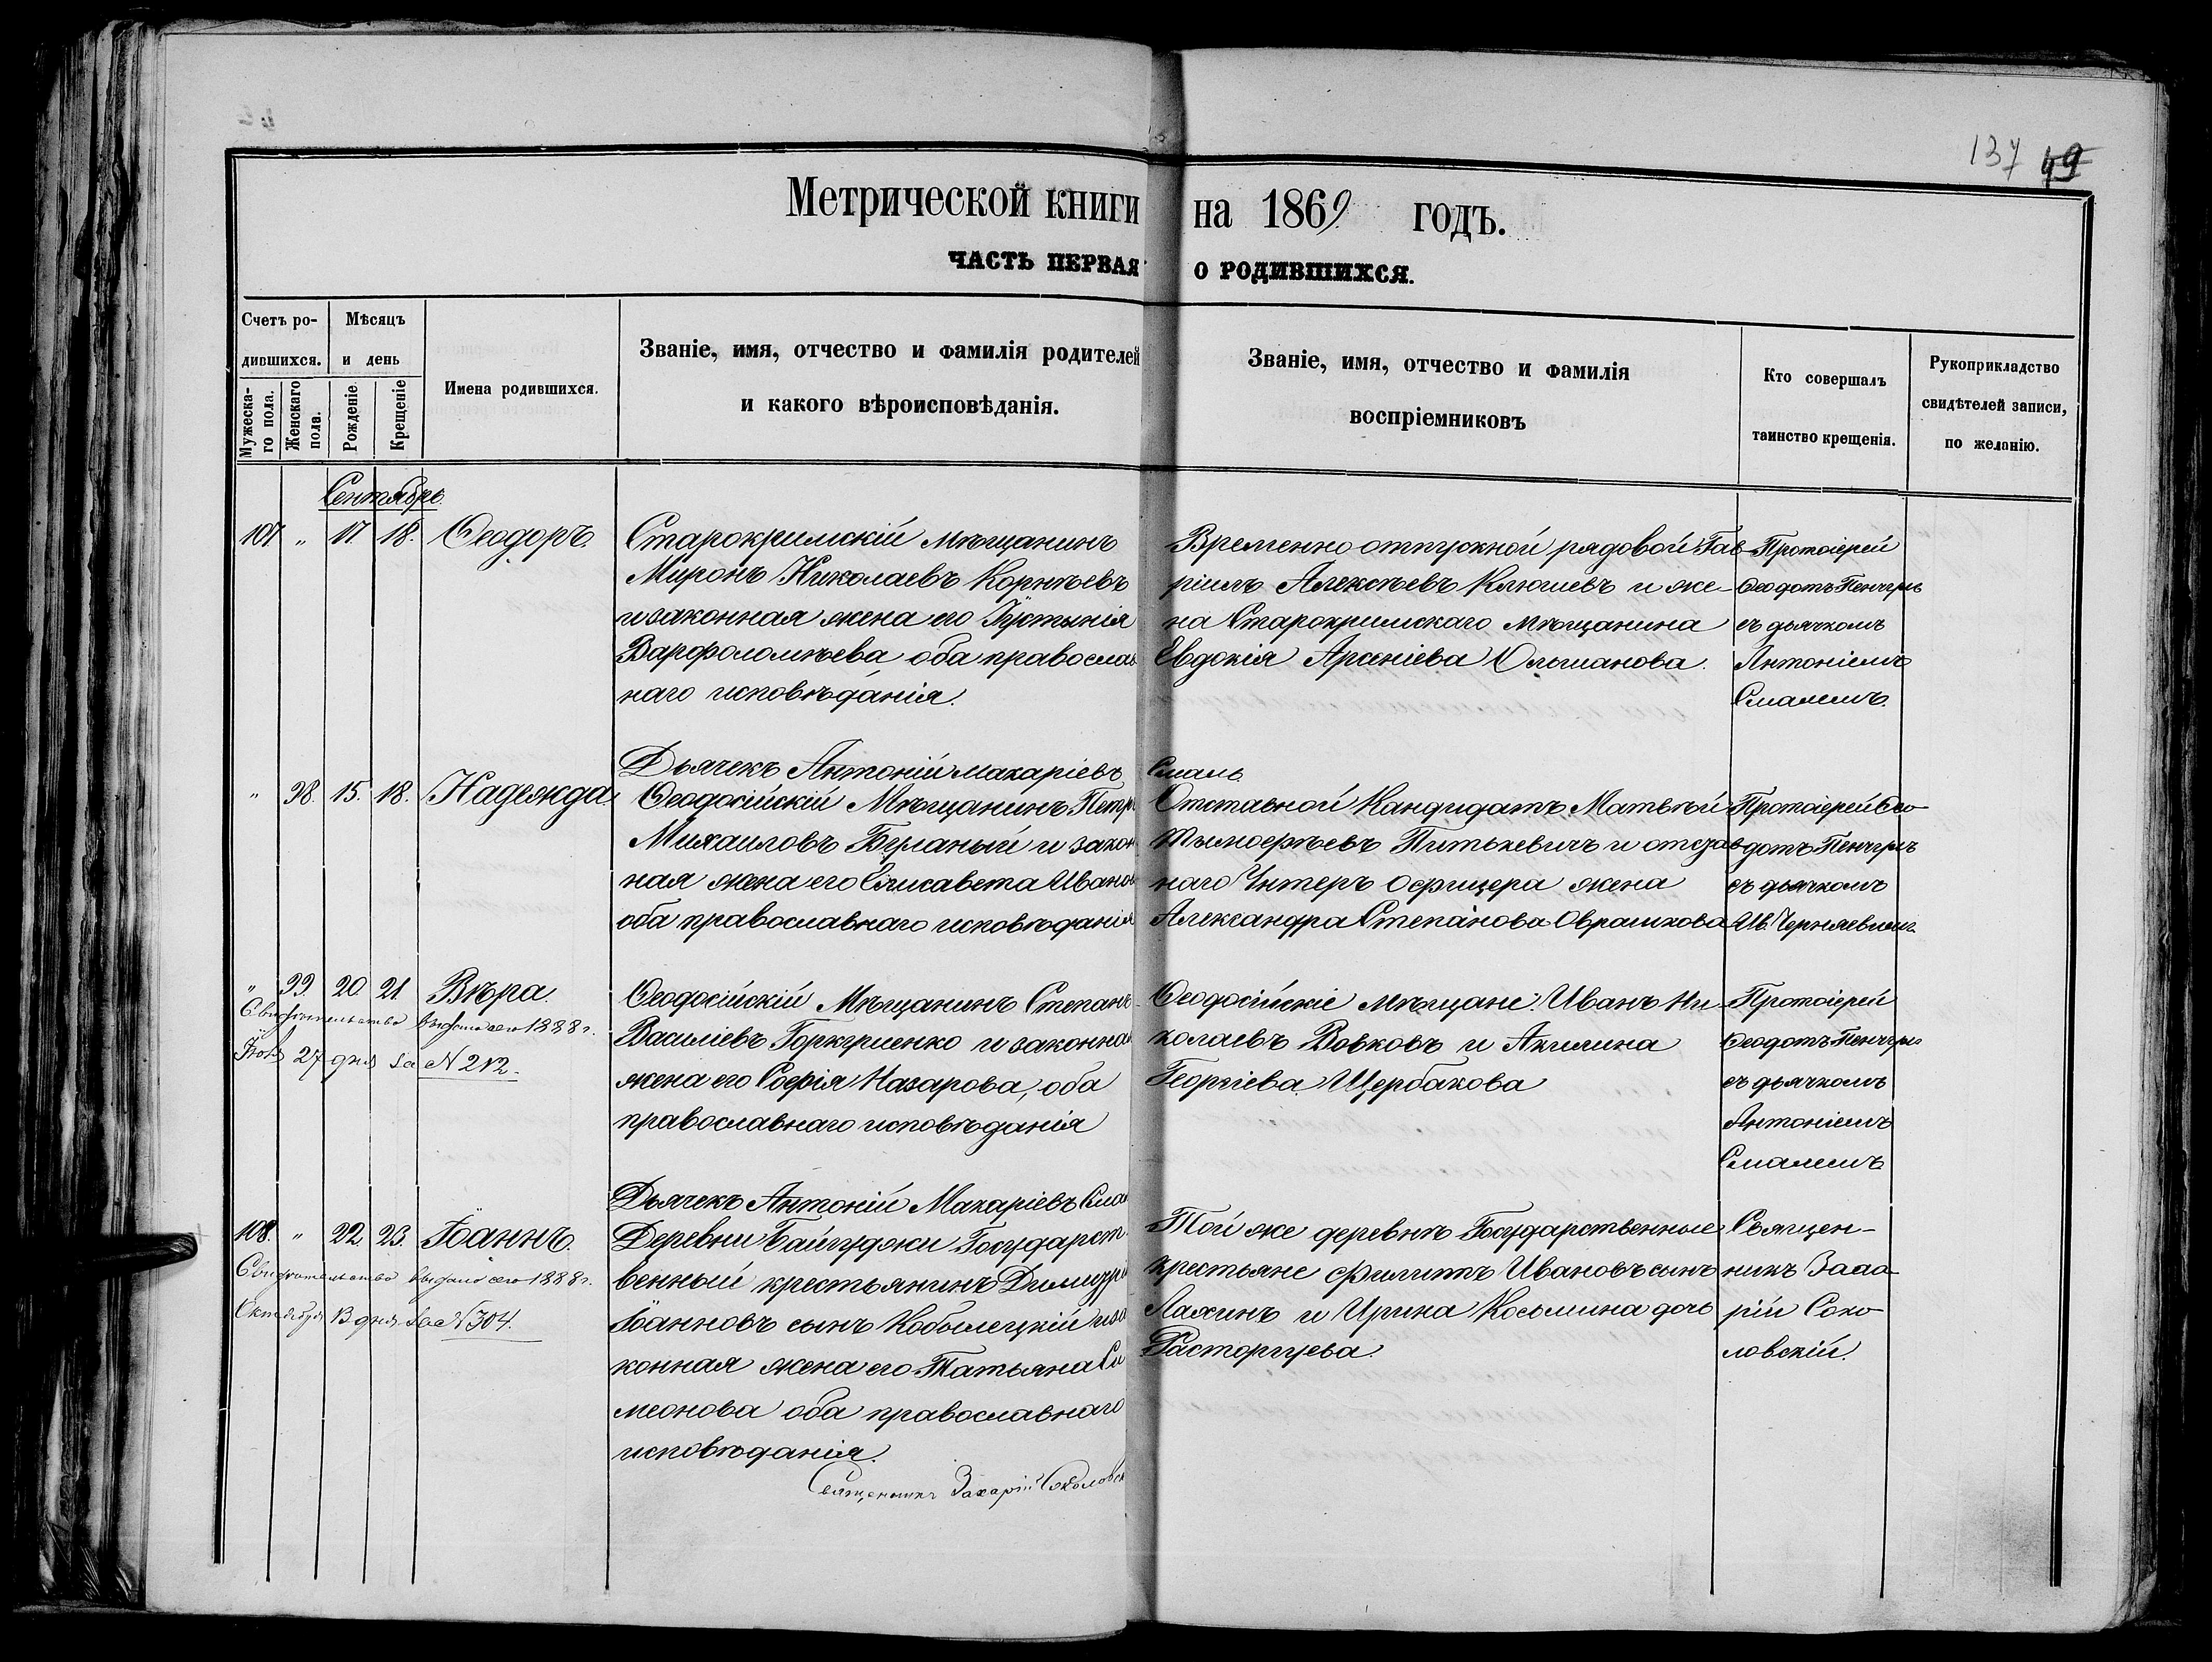 137 49
Метрической книги на 1869 годъ.
ЧАСТЬ ПЕРВАЯ О РОДИВШИХСЯ.
Счетъ ро-
дившихся.
Мужеска-
го пола.
Женскаго
пола.
Мѣсяцъ
и день
Рожденіе
Крещеніе
Имена родившихся.
Званіе, имя, отчество и фамилія родителей
и какого вѣроисповѣданія.
Званіе, имя, отчество и фамилія
воспріемниковъ
Кто совершалъ
таинство крещенія.
Рукоприкладство
свидѣтелей записи,
по желанію.
Сентябрь.
107 „ 17. 18. Ѳеодоръ.
Старокримскій мѣщанинъ
Миронъ Николаевъ Корнѣевъ
и законная жена его Іустинія
Варфоломѣева оба православ
наго исповѣданія.
Временно отпускной рядовой Гав
ріилъ Алексѣевъ Клюшевъ и же-
на Старокримскаго мѣщанина
Евдокія Арсеніева Ольшанова.
Протоіерей
Ѳеодотъ
съ дьячкомъ
Антоніемъ
Смалемъ.
Дьячекъ Антоній Макаріевъ Смаль
„ 98. 15. 18. Надежда
Ѳеодосійскій Мѣщанинъ Петръ
Михаиловъ и закон
ная жена его Елисавета Иванов
оба православнаго исповѣданія
Отставной Кандидатъ Матвѣй
Тимоѳѣевъ Питькевичъ и отстав
наго Унтеръ Офицера жена
Александра Степанова Оврашкова
Протоіерей Ѳео
дотъ
съ дьячкомъ
Ив.
„ 99. 20. 21. Вѣра.
Свидѣтельство выдано сего 1888 г.
Іюня 27 дня за N 212.
Ѳеодосійскій Мѣщанинъ Степанъ
Василіевъ и законная
жена его Софія Назарова, оба
православнаго исповѣданія
Ѳеодосійскіе мѣщане: Иванъ Ни-
колаевъ Вовковъ и Акилина
Георгіева Щербакова
Протоіерей
Ѳеодотъ
съ дьячкомъ
Антоніемъ
Смалемъ
Дьячекъ Антоній Макаріевъ Смал
108. „ 22. 23. Іоаннъ.
Свидѣтельство выдано сего 1888 г.
Октября 13 дня за N 304.
Деревни Байгуджи Государст
венный крестьянинъ Димитрій
Іоанновъ сынъ Кобылецкій и за
конная жена его Татьяна Си
меонова оба православнаго
исповѣданія.
Той же деревнѣ Государственные
крестьяне Филиппъ Ивановъ сынъ
Лахинъ и Ирина Косьмина дочь
Расторгуева.
Священ-
никъ Заха
рій Соко
ловскій.
Священникъ Захарій Соколовск